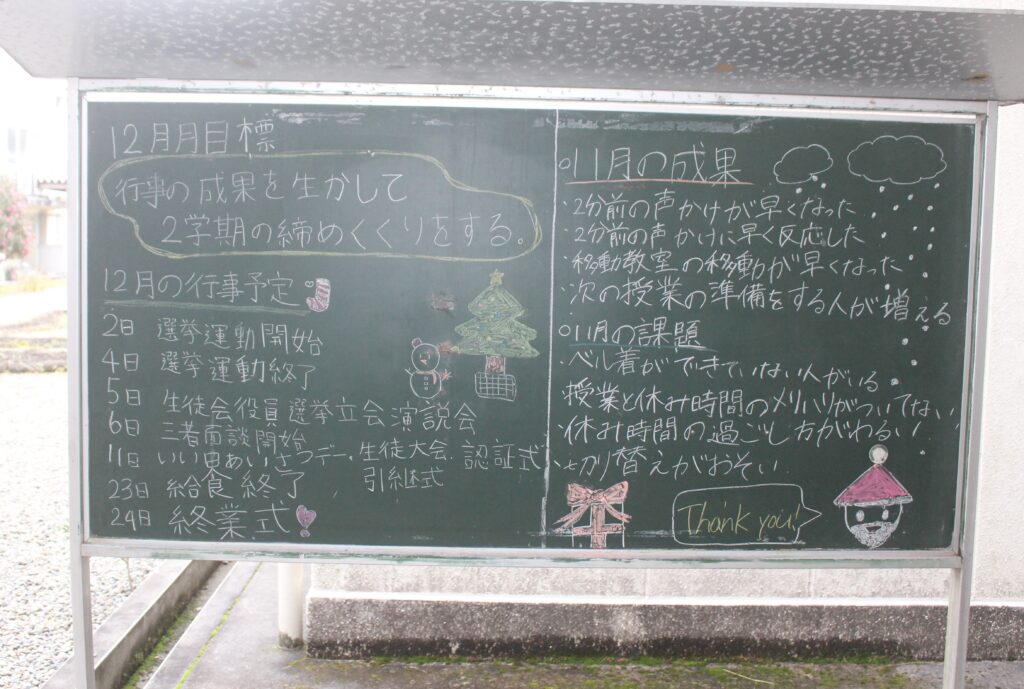 12月月目標
行事の成果を生かして
2学期の締めくくりをする。
12月の行事予定
2日 選挙運動開始
4日 選挙運動終了
5日 生徒会役員選挙立会演説会
6日 三者面談開始
11日 いい由あいさつデー、生徒大会、認証式、
引継式
23日 給食終了
24日 終業式
○11月の成果
・2分前の声かけが早くなった
・2分前の声かけに早く反応した
・移動教室の移動が早くなった
・次の授業の準備をする人が増える
○11月の課題
・ベル着ができていない人がいる
・授業と休み時間のメリハリがついてない
・休み時間の過ごし方がわるい
・切り替えがおそい
Thank you!